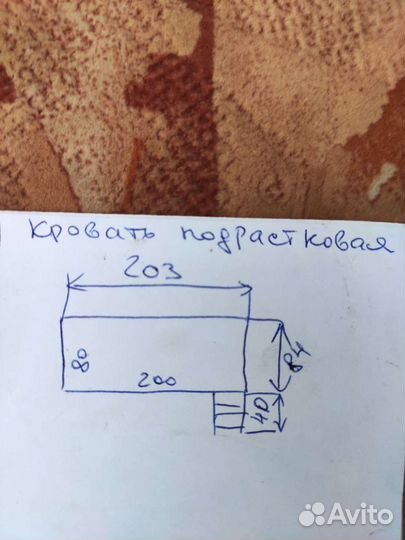 кровать подрастковая
203
80
84
200
40
Avito